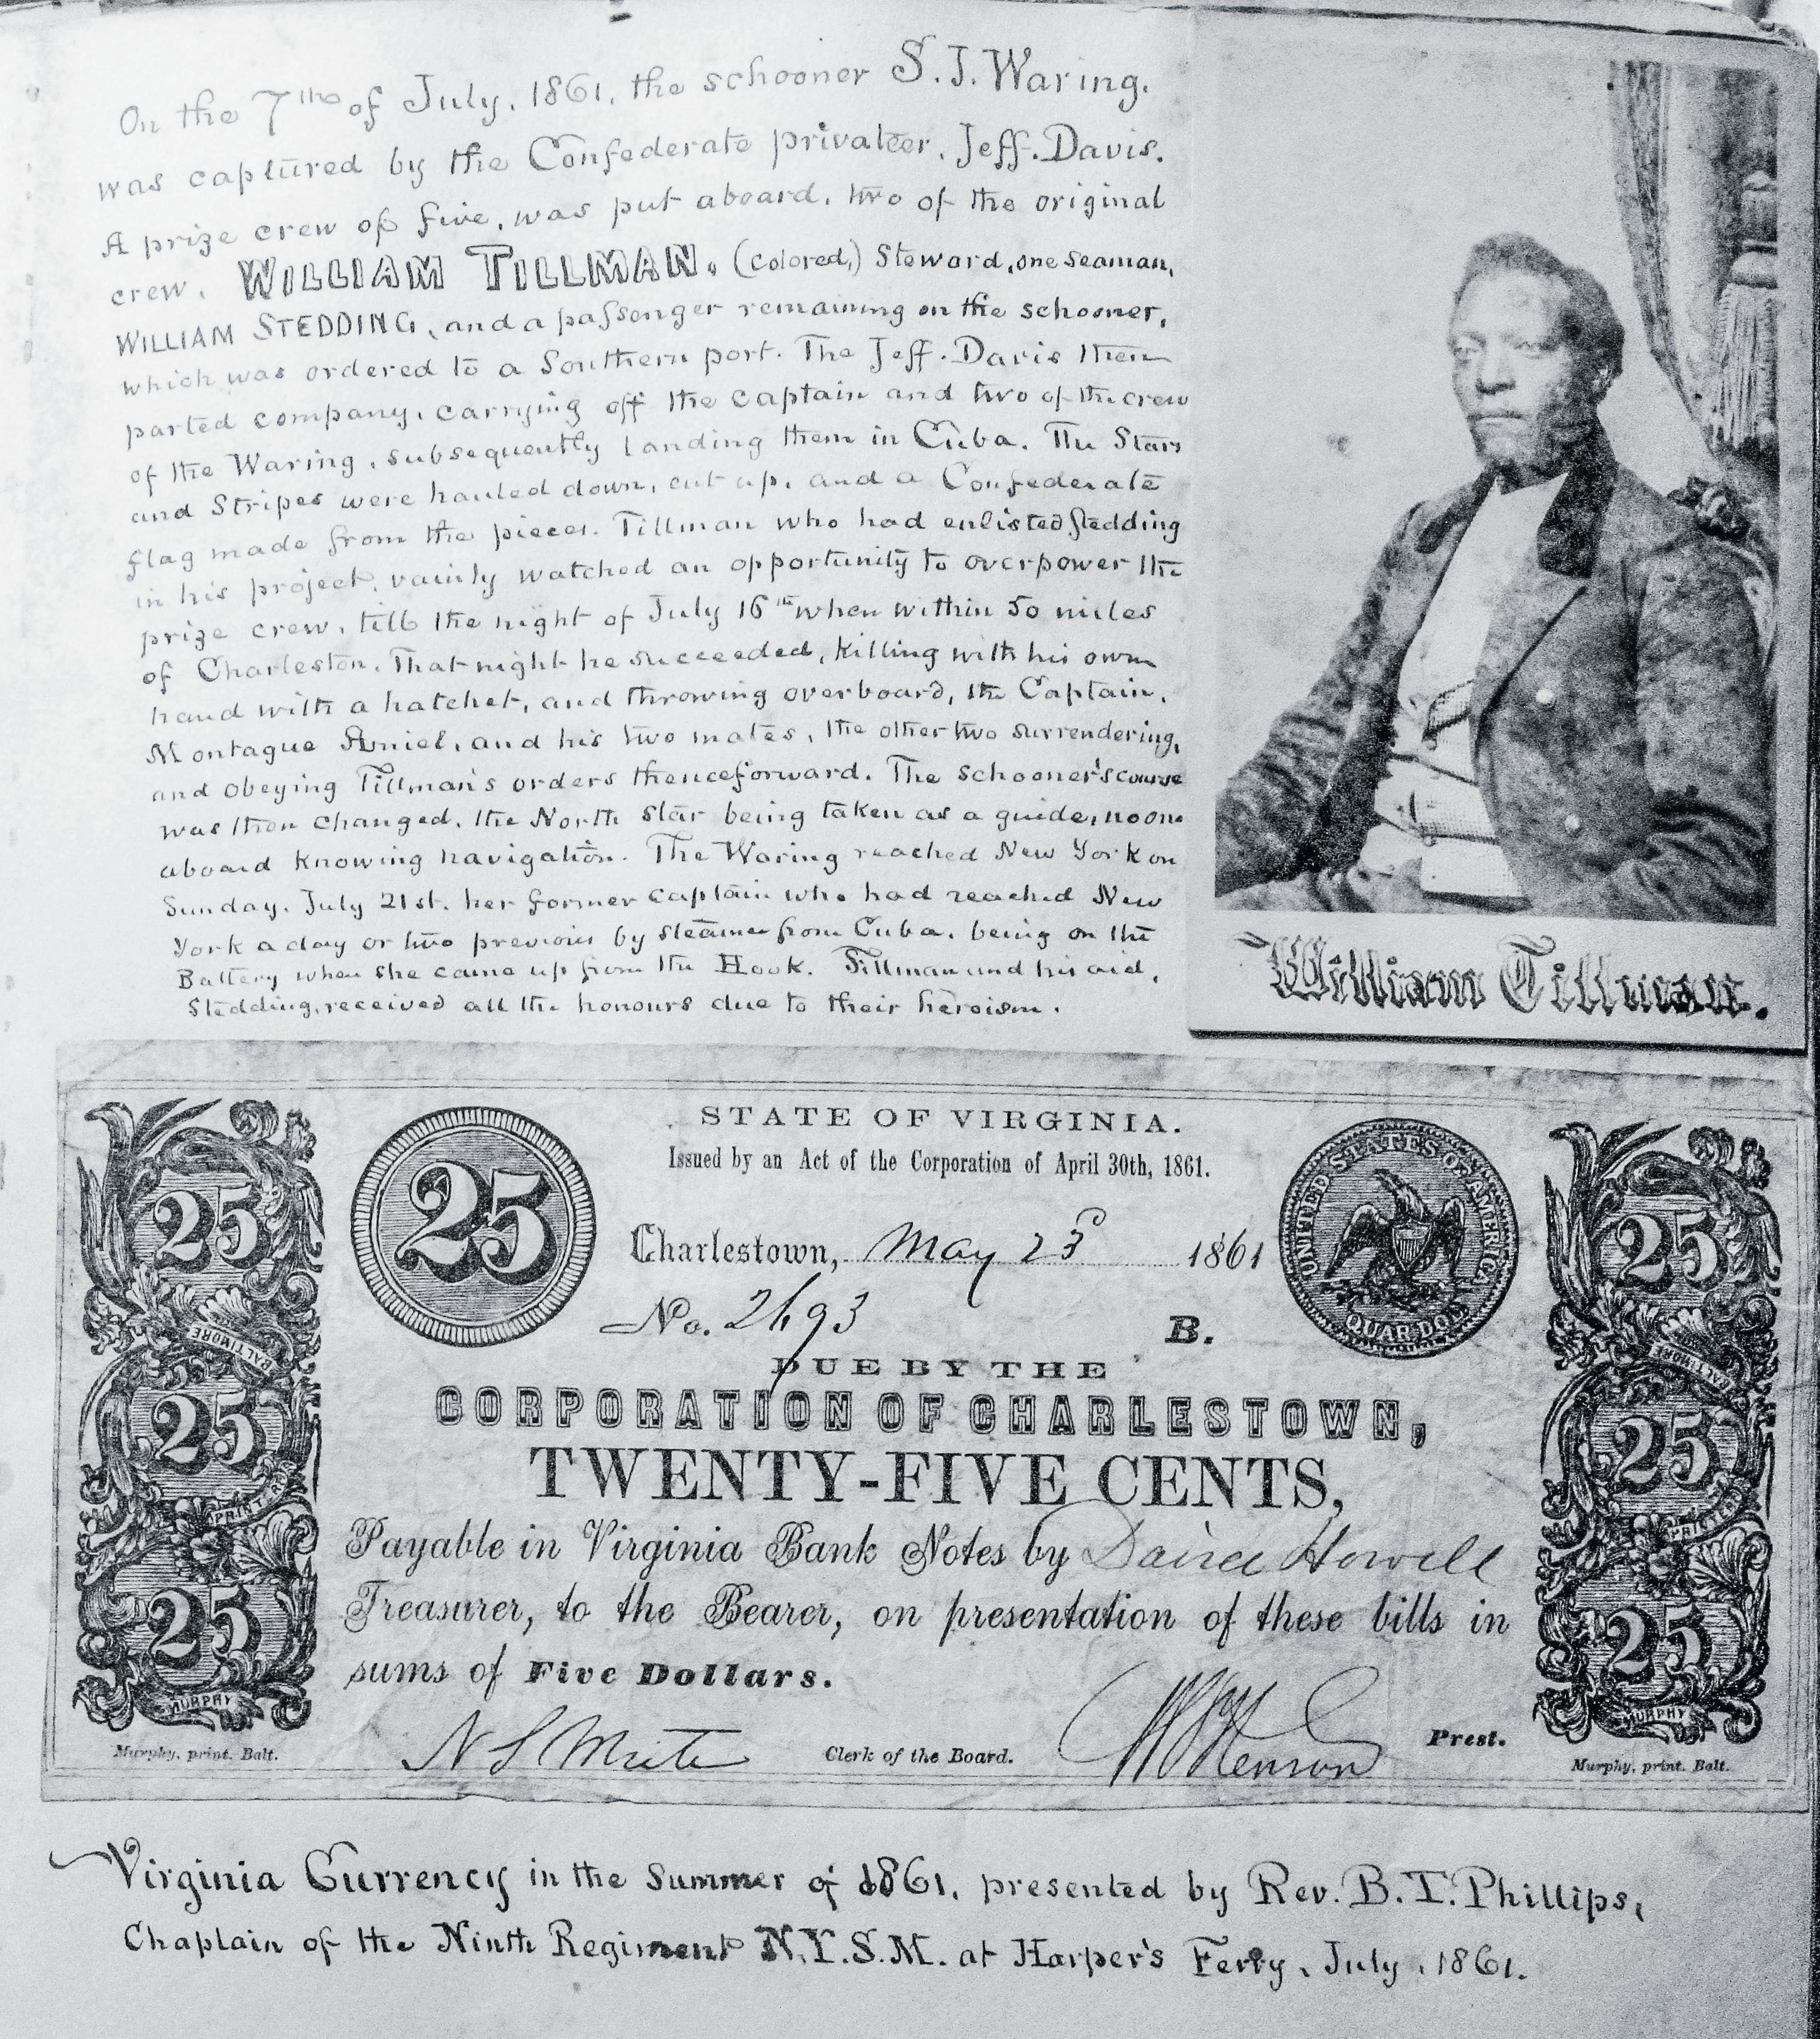 On the 7th of July, 1861, the schooner S. J. Waring,
was captured by the Confederate privateer, Jeff. Davis.
A prize crew of five, was put aboard, two of the original
crew, WILLIAM TILLMAN, (colored,) Steward, one seaman,
WILLIAM STEDDING, and a passenger remaining on the schooner,
which was ordered to a Southern port. The Jeff. Davis then
parted company, carrying off the captain and two of the crew
of the Waring, subsequently landing them in Cuba. The Stars
and Stripes were hauled down, cut up, and a Confederate
flag made from the pieces. Tillman who had enlisted Stedding
in his project, vainly watched an opportunity to overpower the
prize crew, till the night of July 16th when within 50 miles
of Charleston. That night he succeeded, killing with his own
hand with a hatchet, and throwing overboard, the Captain,
Montague Amiel, and his two mates, the other two surrendering,
and obeying Tillman's orders thenceforward. The schooner's course
was then changed, the North star being taken as a guide, no one
aboard knowing navigation. The Waring reached New York on
Sunday, July 21st. her former captain who had reached New
York a day or two previous by steamer from Cuba, being on the
Battery when she came up from the Hook. Tillman and his aid,
Stedding, received all the honours due to their heroism.
William Tillman.
STATE OF VIRGINIA.
Issued by an Act of the Corporation of April 30th, 1861.
25
Charlestown, May 23d 1861
UNITED STATES OF AMERICA
QUAR. DOL.
No. 2693
B.
DUE BY THE
CORPORATION OF CHARLESTOWN,
TWENTY-FIVE CENTS,
Payable in Virginia Bank Notes by Howell
Treasurer, to the Bearer, on presentation of these bills in
sums of Five Dollars.
Clerk of the Board.
Prest.
25
BALTIMORE
25
PRINTER
25
MURPHY
Murphy, print. Balt.
25
BALTIMORE
25
PRINTER
25
MURPHY
Murphy, print. Balt.
Virginia Currency in the Summer of 1861, presented by Rev. B. T. Phillips,
Chaplain of the Ninth Regiment N.Y.S.M. at Harper's Ferry, July, 1861.